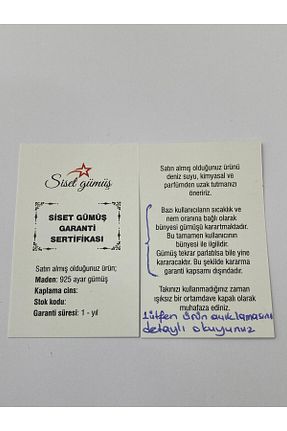 Siset gümüş
SİSET GÜMÜŞ
GARANTİ
SERTİFİKASI
Satın almış olduğunuz ürün;
Maden: 925 ayar gümüş
Kaplama cins:
Stok kodu:
Garanti süresi: 1 - yıl
Satın almış olduğunuz ürünü
deniz suyu, kimyasal ve
parfümden uzak tutmanızı
öneririz.
Bazı kullanıcıların sıcaklık ve
nem oranına bağlı olarak
bünyesi gümüşü karartmaktadır.
Bu tamamen kullanıcının
bünyesi ile ilgilidir.
Gümüş tekrar parlabisa bile yine
kararacaktır. Bu şekilde kararma
garanti kapsamı dışındadır.
Takınızı kullanmadığınız zaman
ışıksız bir ortamdave kapalı olarak
muhafaza ediniz.
Lütfen ürün açıklamasını
detaylı okuyunuz